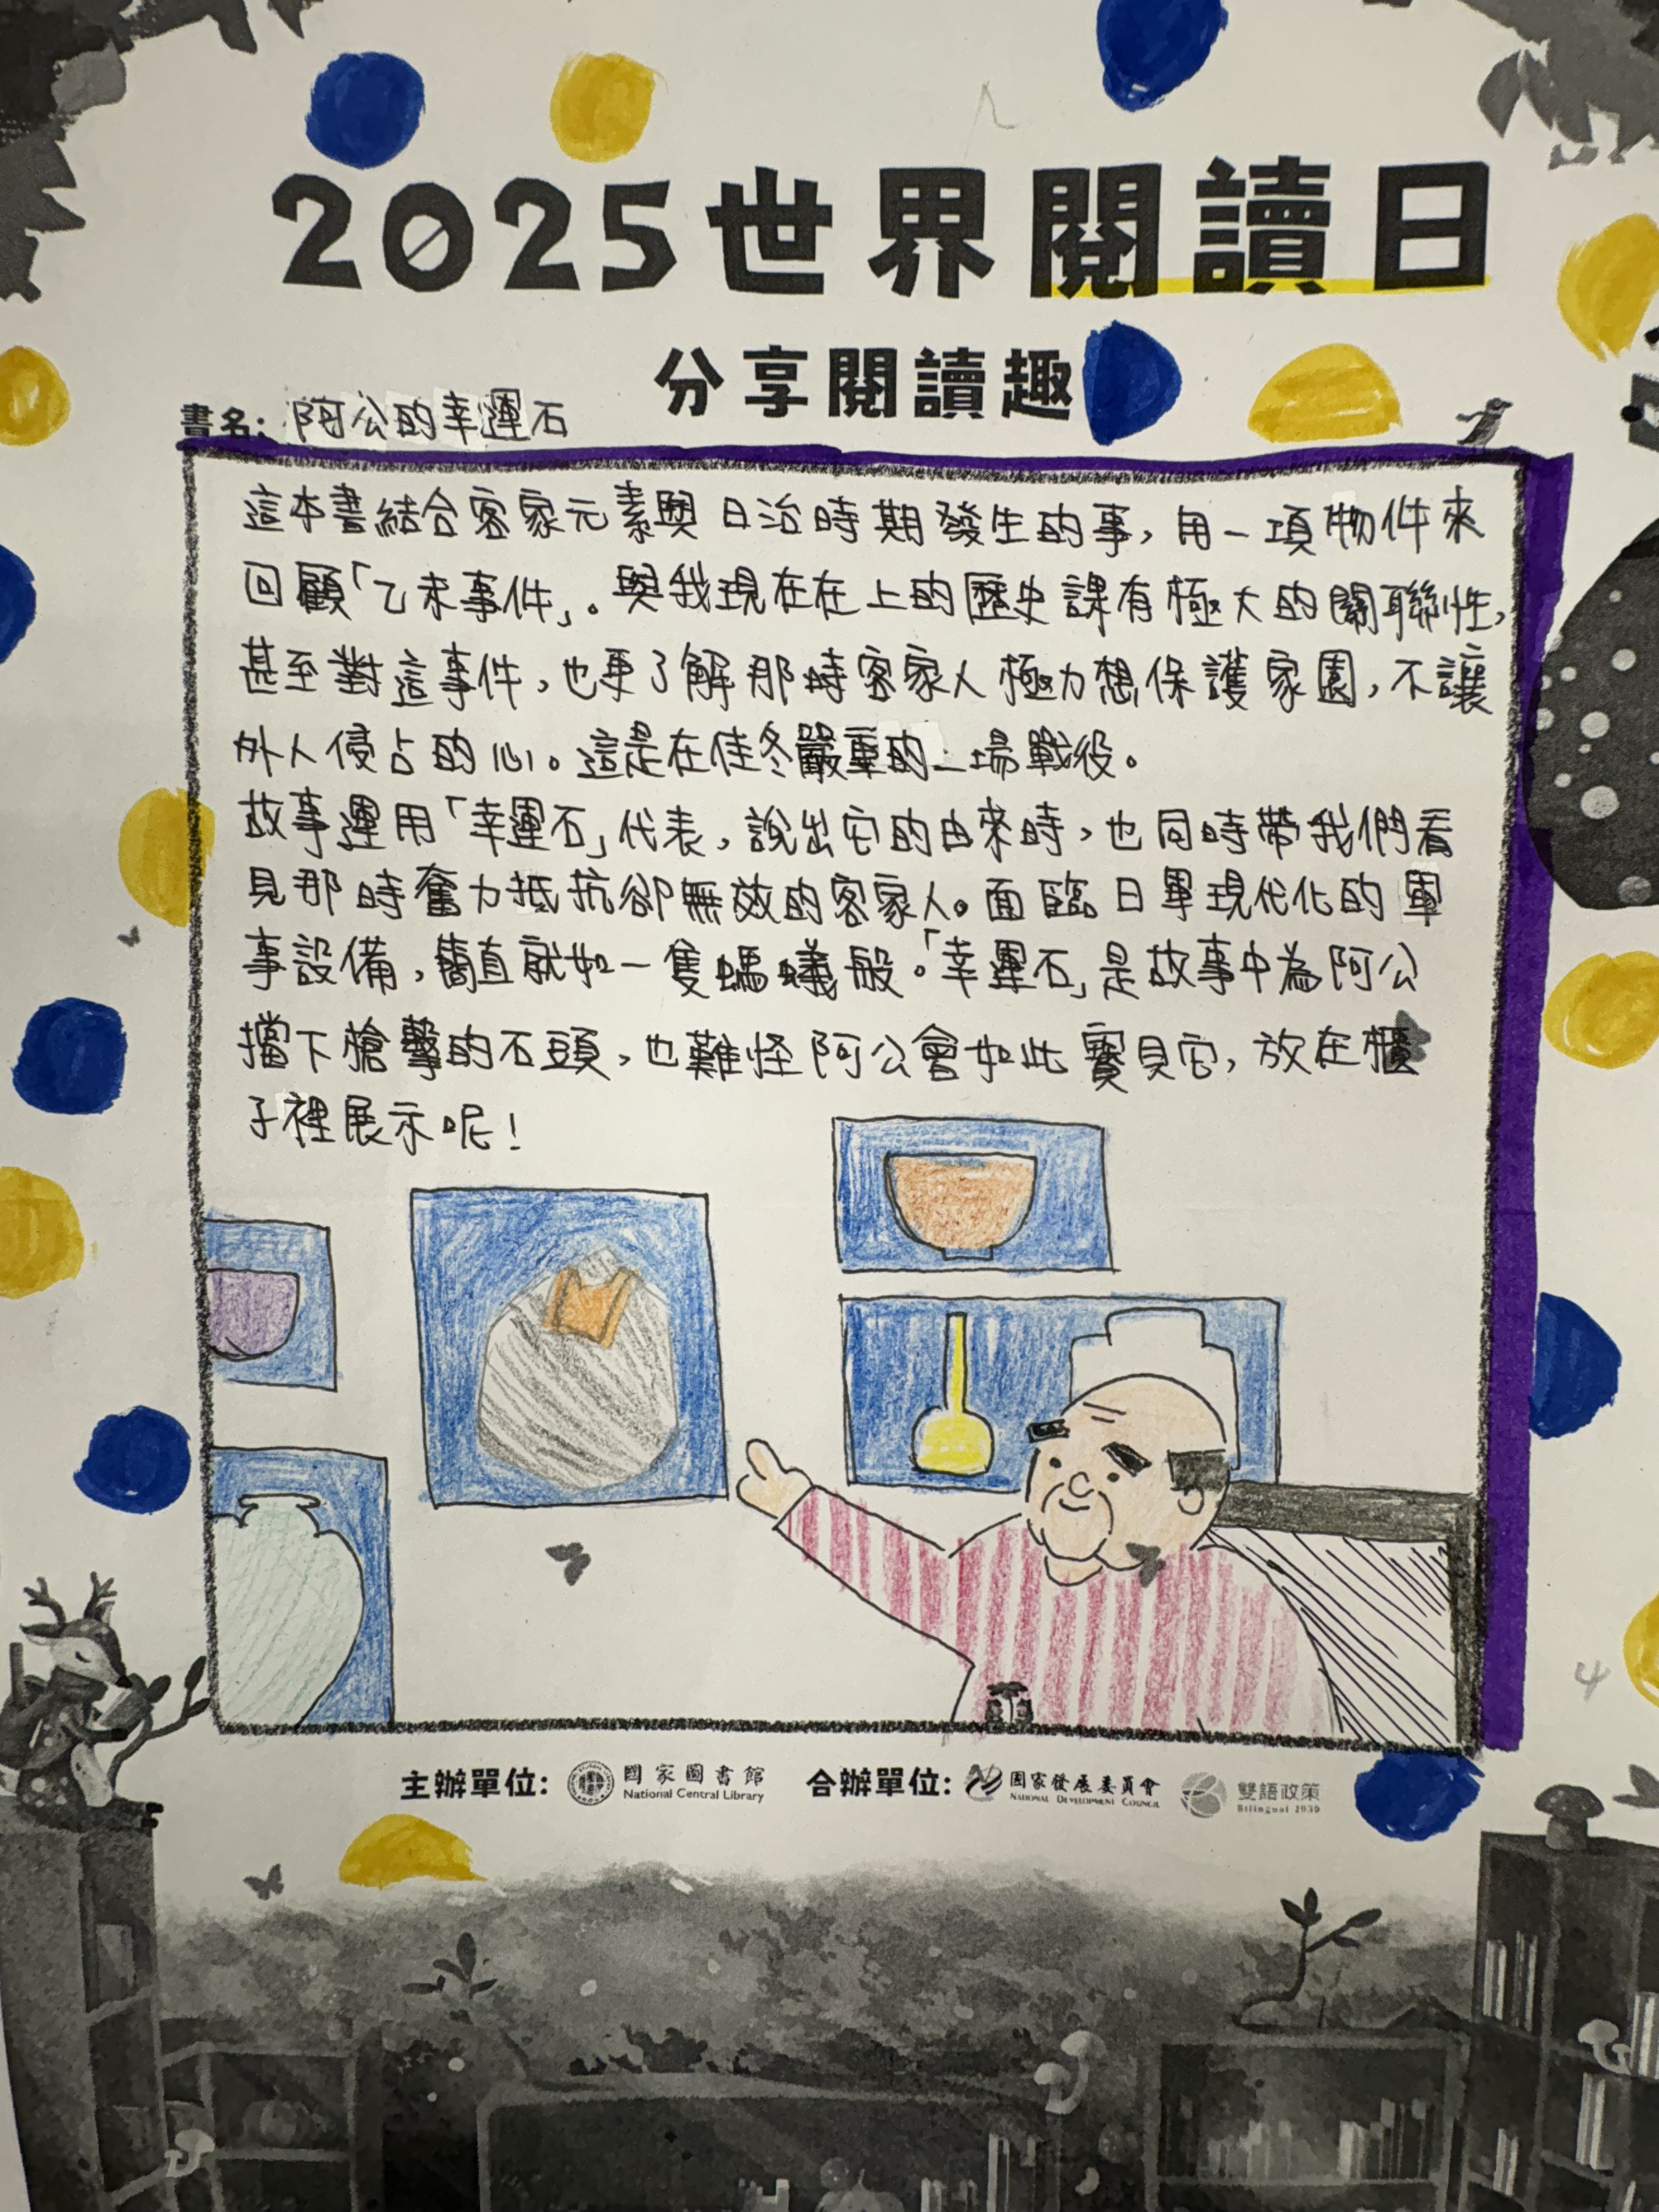 2025世界閱讀日
分享閱讀趣
書名：阿公的幸運石
這本書結合客家元素與日治時期發生的事，用一項物件來
回顧「乙未事件」。與我現在在上的歷史課有極大的關聯性，
甚至對這事件，也更了解那時客家人極力想保護家園，不讓
外人侵占的心。這是在佳冬嚴重的一場戰役。
故事運用「幸運石」代表，說出它的由來時，也同時帶我們看
見那時奮力抵抗卻無效的客家人。面臨日軍現代化的軍
事設備，簡直就如一隻螞蟻般。「幸運石」是故事中為阿公
擋下槍擊的石頭，也難怪阿公會如此寶貝它，放在櫃
子裡展示呢！
主辦單位： 國家圖書館 National Central Library 合辦單位： 國家發展委員會 NATIONAL DEVELOPMENT COUNCIL 雙語政策 Bilingual 2030